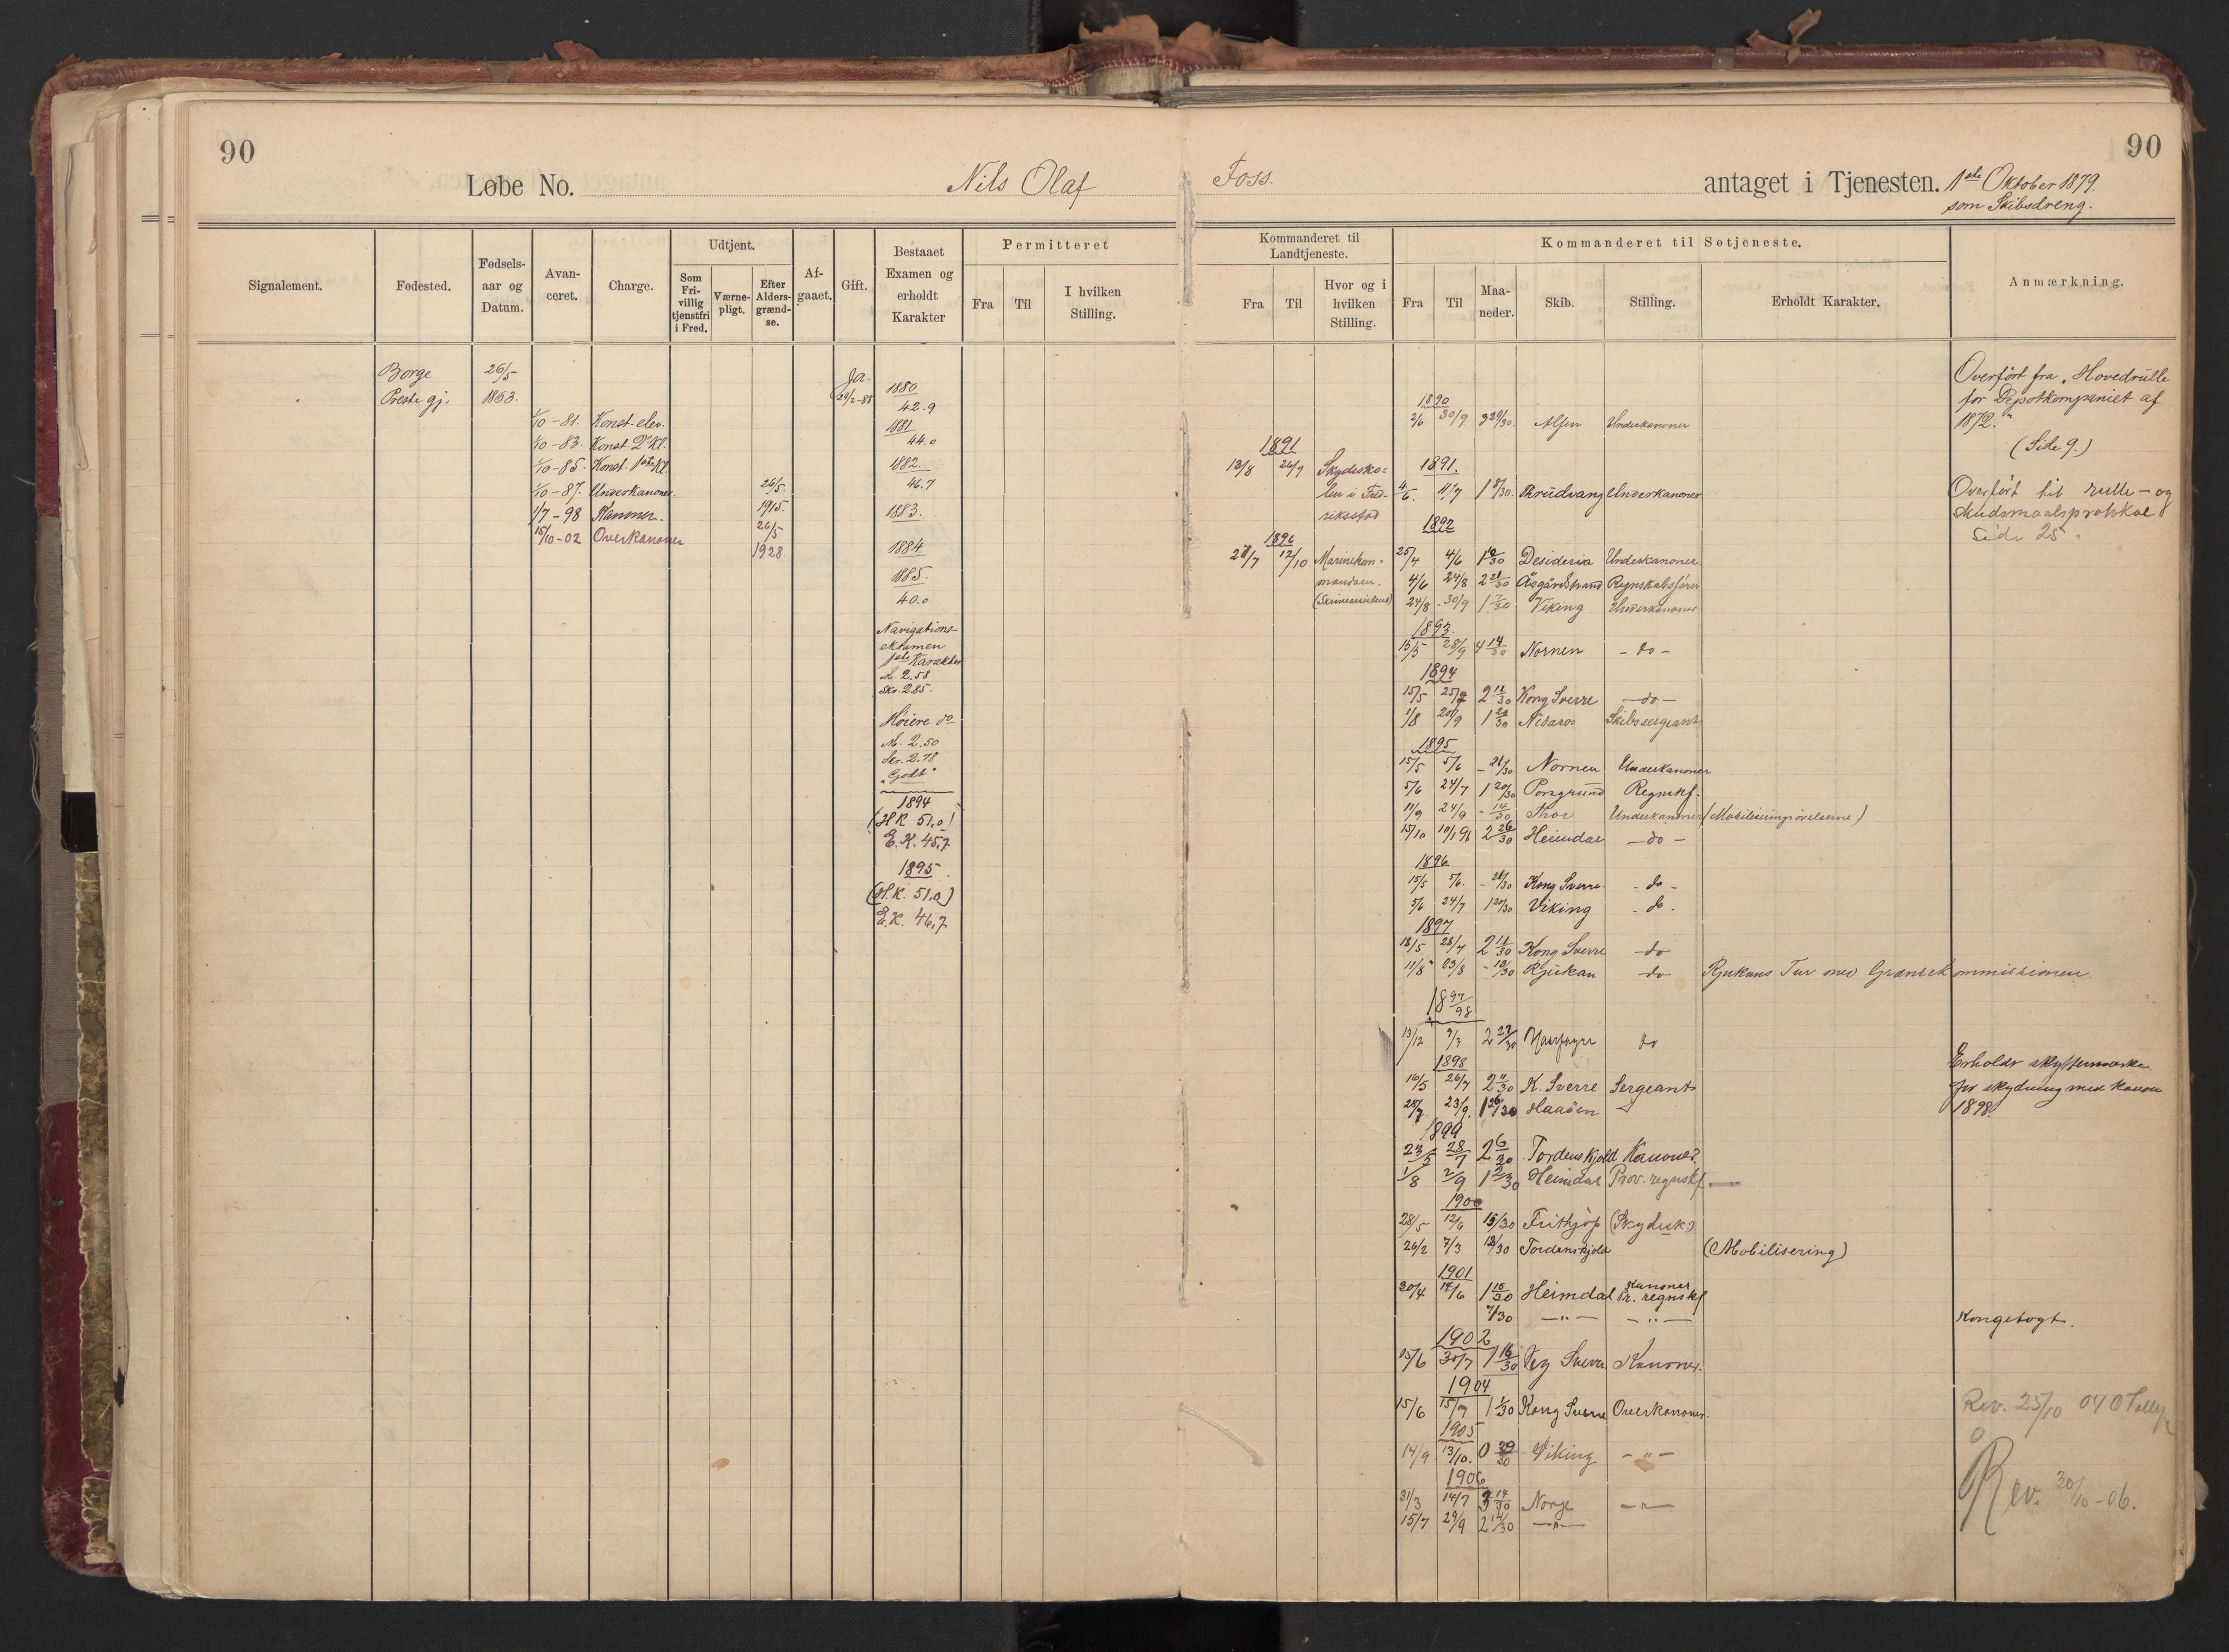 90
90
Løbe No. Nils Olaf Foss. antaget i Tjenesten. 1ste Oktober 1879.
som Skibsdreng.
Signalement.
Fødested.
Fødsels-
aar og
Datum.
Avan-
ceret.
Charge.
Udtjent.
Som
Fri-
villig
tjenstfri
i Fred.
Værne-
pligt.
Efter
Alders-
grænd-
se.
Af-
gaaet.
Gift.
Bestaaet
Examen og
erholdt
Karakter
Permitteret
Fra
Til
I hvilken
Stilling.
Kommanderet til
Landtjeneste.
Fra
Til
Hvor og i
hvilken
Stilling.
Kommanderet til Søtjeneste.
Fra
Til
Maa-
neder.
Skib.
Stilling.
Erholdt Karakter.
Anmærkning.
Borge
Preste gj.
26/5
1863.
1/10-81. Konst. elev.
1/10-83. Konst. 2 Kl.
1/10-85. Konst. 1ste Kl.
1/10-87. Underkanoner.
1/7-98 Kanoner.
15/10-02 Overkanoner
26/5.
1915.
26/5
1928
Ja.
1880
42.9
1881
44.0
1882.
46.7
1883.
1884.
1885.
40.0
Navigations-
eksamen
1ste Karakter
M. 2.58
Skr. 2.85.
Høiere do
M. 2.50
Skr. 2.78
"Godt"
1894
(H.K. 51,0)
E.K. 45,7
1895
(H.K. 51.0)
E.K. 46,7
1891
13/8 26/9 Skydesko-
len i Fred-
riksstad
1896
27/7 12/10 Marinekom-
mandoen.
1890
2/6 30/9 3 29/30. Alfen Underkanoner
1891.
4/6. 11/7 1 8/30. Thrudvang Underkanoner
1892
25/4 4/6 1 10/30 Desideria Underkanoner
4/6 24/8 2 21/30 Åsgårdstrand Regnskabsfører
24/8 - 30/9 1 7/30 Viking Underkanoner
1893.
15/5 28/9 4 14/30 Nornen - do -
1894
15/5 25/7 2 11/30 Kong Sverre - do -
1/8 20/9 1 20/30 Nidaros Skibssergeant
1895
15/5 5/6 - 21/30 Nornen Underkanoner
5/6 24/7 1 20/30 Porsgrund Regnskf.
11/9 24/9 - 14/30 Thor Underkanoner (Mobiliseringsøvelserne)
15/10 10/1 96 2 26/30 Heimdal - do -
1896
15/5 5/6. - 21/30 Kong Sverre - do -
5/6 24/7 1 20/30 Viking - do -
1897
18/5 28/7 2 11/30 Kong Sverre do
11/8 23/8 - 13/30 Rjukan do Rjukans Tur med Grænsekommissionen.
1897/98
13/12 9/3 2 27/30 Haarfagre do
1898
16/5 26/7 2 11/30 K. Sverre Sergeant
28/7 23/9. 1 26/30 Haaøen
1899
23/5 28/7 2 6/30 Tordenskjold Kanoner.
1/8 2/9 1 2/30 Heimdal Prov. regnskf. —
1900
28/5 12/6 15/30 Frithjof (Skydesk)
26/2 7/3 12/30 Tordenskjold (Mobilisering)
1901
30/4 14/6 1 15/30 Heimdal Kanoner
Pr. regnskf
7/30 - " - - " -
1902
15/6 30/7 1 16/30 Kg Sverre Kanoner.
1904
15/6 15/7 1 1/30 Kong Sverre Overkanoner.
1905
14/9 13/10. 0 29/30 Viking - " -
1906
31/3 14/7 3 14/30 Norge - " -
15/7 29/9 2 14/30 - " -
Overført fra "Hovedrulle
for Depotkompaniet af
1872."
(Side 9.)
Overført til rulle - og
skudsmaalsprotokol
Side 25.
Erholdt skyttermærke
for skydning med kanon
1898.
Kongetogt.
Rev. 25/10 04
Rev. 30/10 - 06.